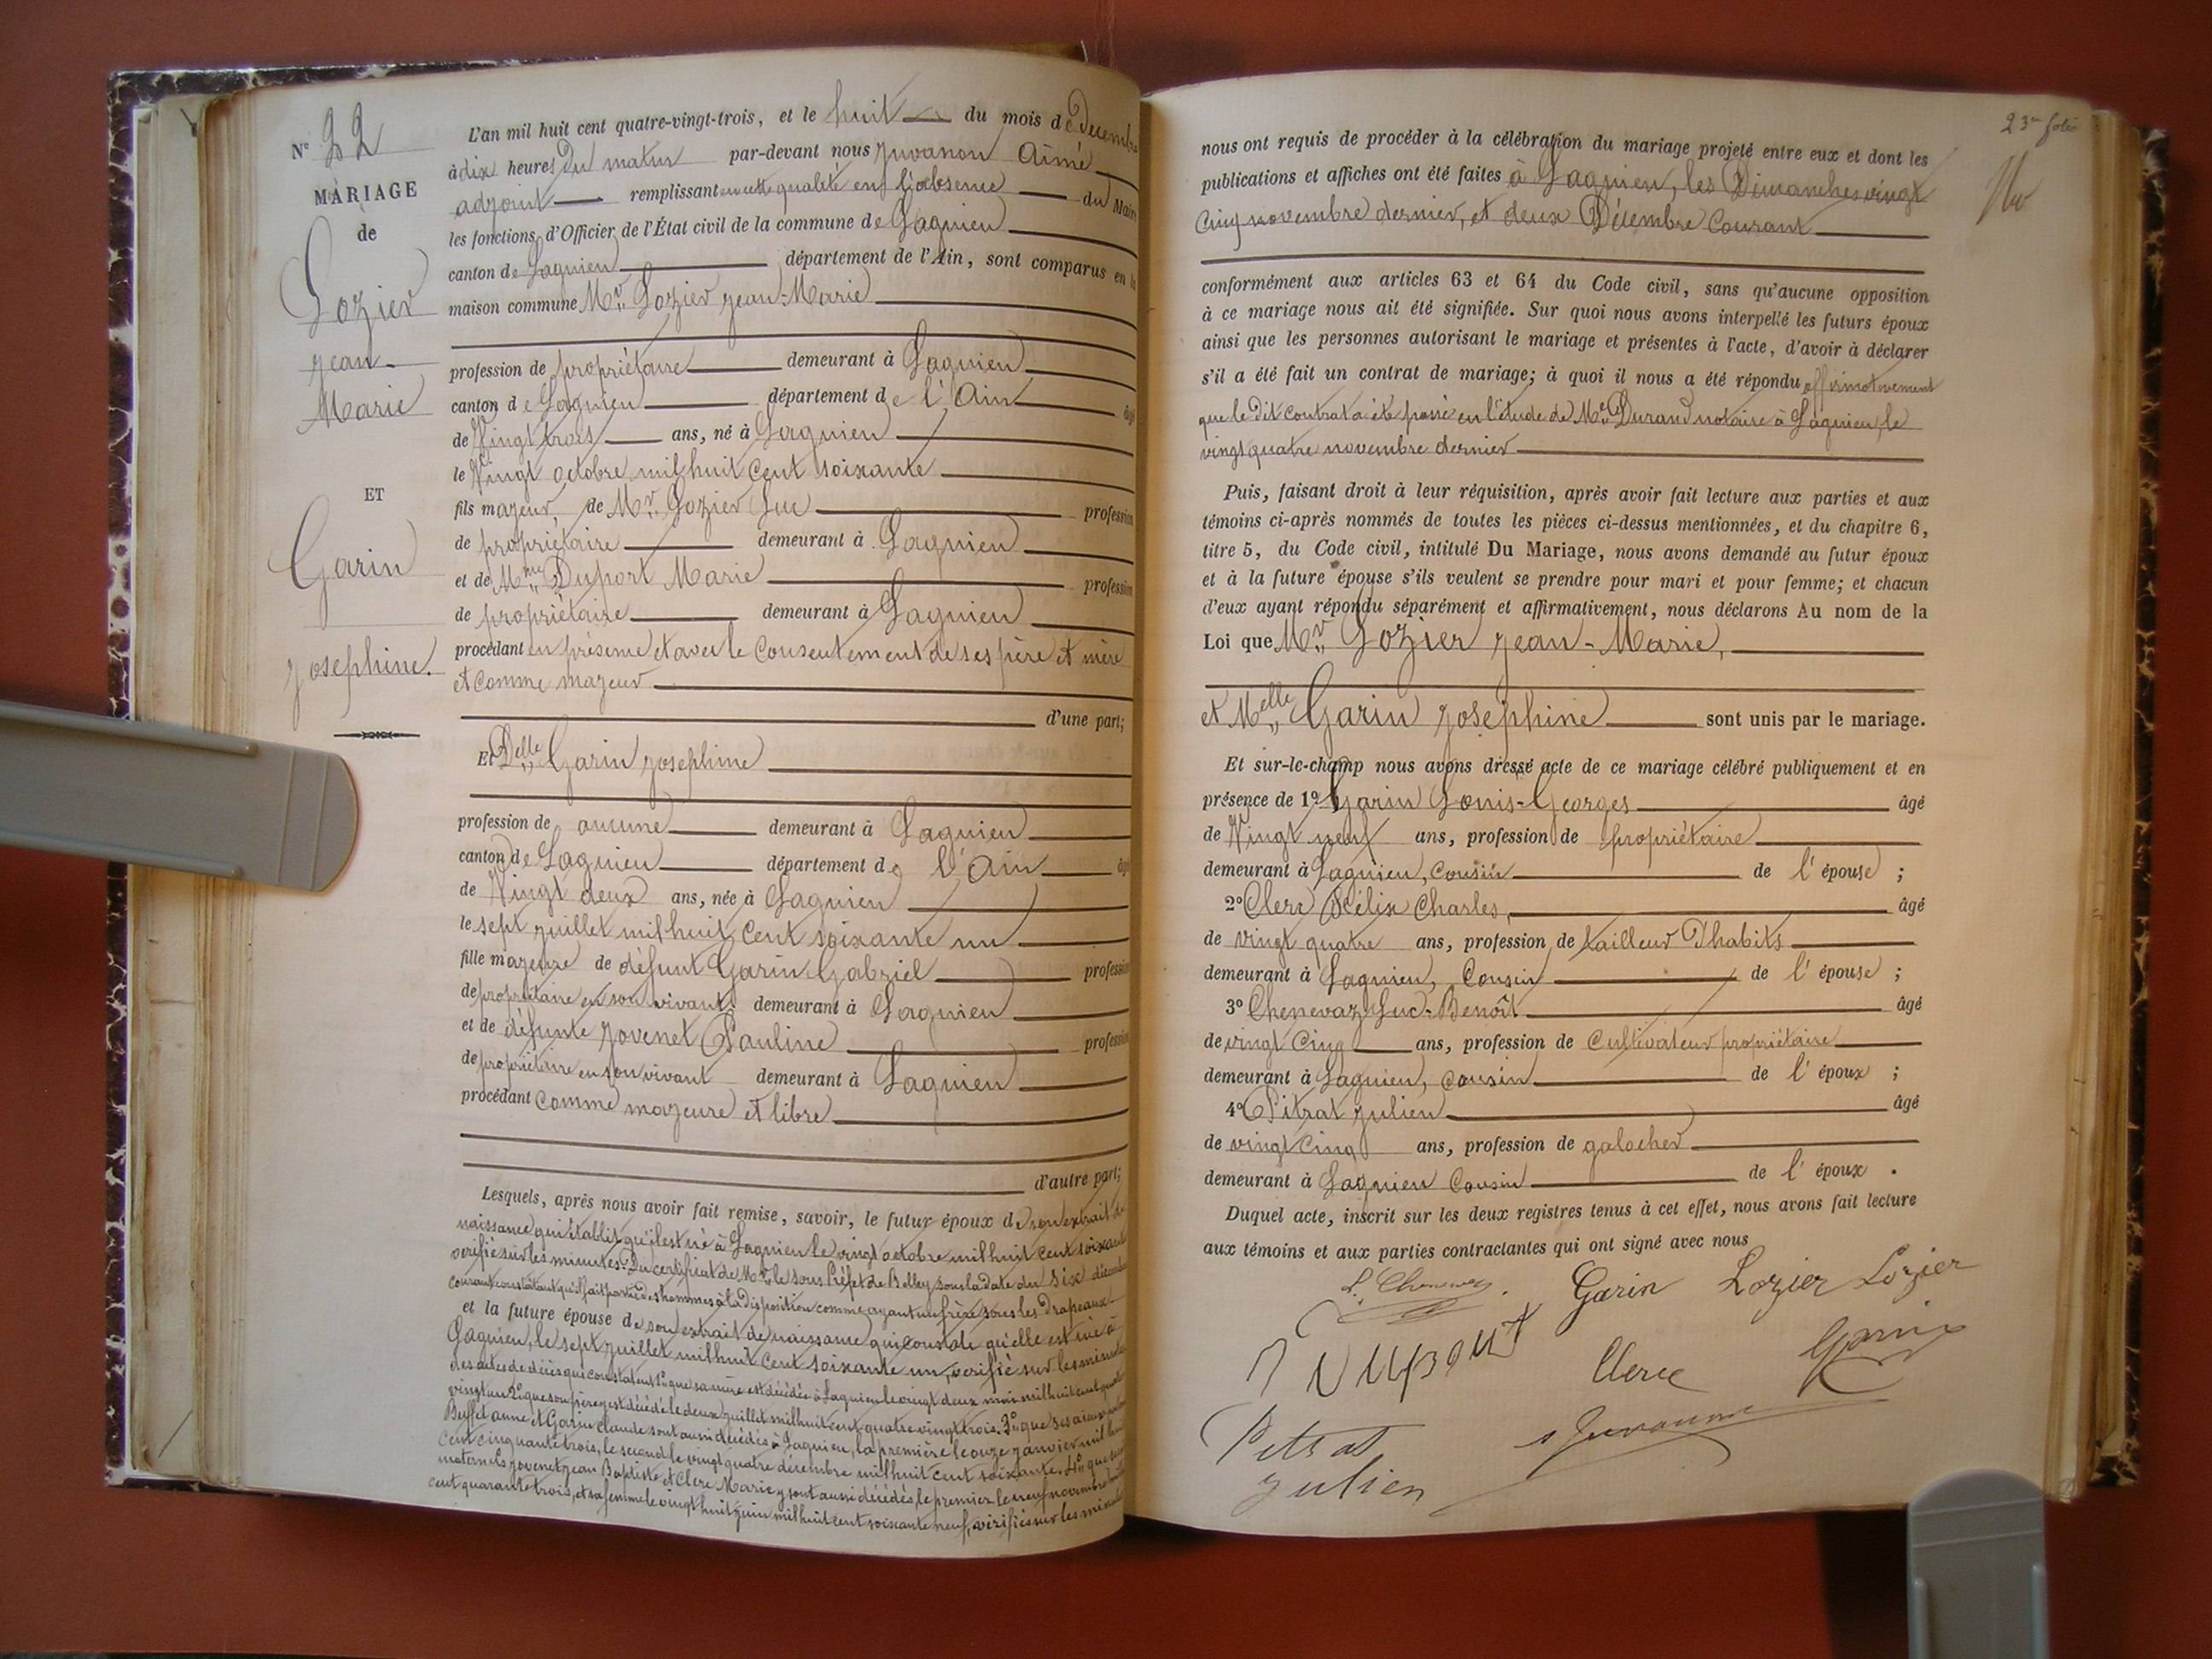 N° 22
MARIAGE
de
Lozier
Jean-
Marie
ET
Garin
Josephine.
L'an mil huit cent quatre-vingt-trois, et le huit du mois de Décembre
à dix heures du matin par-devant nous Juvanon Aimé
adjoint remplissant en cette qualité en l'absence du Maire
les fonctions d'Officier de l'État civil de la commune de Lagnieu
canton de Lagnieu département de l'Ain, sont comparus en la
maison commune Mr. Lozier Jean-Marie
profession de propriétaire demeurant à Lagnieu
canton de Lagnieu département de l'Ain âgé
de Vingt trois ans, né à Lagnieu
le Vingt octobre mil huit cent soixante
fils majeur de Mr. Lozier Luc profession
de propriétaire demeurant à Lagnieu
et de Mme Duport Marie profession
de propriétaire demeurant à Lagnieu
procédant en présence et avec le consentement de ses père et mère
et comme majeur
d'une part;
Et Delle Garin Josephine
profession de aucune demeurant à Lagnieu
canton de Lagnieu département de l'Ain âgée
de Vingt deux ans, née à Lagnieu
le sept juillet mil huit cent soixante un
fille majeure de défunt Garin Gabriel profession
de propriétaire en son vivant demeurant à Lagnieu
et de défunte Jovenet Pauline profession
de propriétaire en son vivant demeurant à Lagnieu
procédant comme majeure et libre
d'autre part;
Lesquels, après nous avoir fait remise, savoir, le futur époux de son extrait de
naissance qui établit qu'il est né à Lagnieu le vingt octobre mil huit cent soixante
vérifié sur les minutes. Du certificat de Mr. le sous Préfet de Belley sous la date du six décembre
courant constatant qu'il fait partie des hommes à la disposition comme ayant un frère sous les Drapeaux
et la future épouse de son extrait de naissance qui constate qu'elle est née à
Lagnieu, le sept juillet mil huit cent soixante un, vérifié sur les minutes
des actes de décès qui constatent 1° que sa mère est décédée à Lagnieu le vingt deux mai mil huit cent quatre
vingt un 2° que son père y est décédé le deux juillet mil huit cent quatre vingt trois. 3° que ses aieux
Buffet anne et Garin Claude sont aussi décédés à Lagnieu, la première le onze janvier mil huit
cent cinquante trois, le second le vingt quatre décembre mil huit cent soixante. 4° que ses
maternels Jovenet Jean Baptiste et Clerc Marie y sont aussi décédés, le premier le neuf novembre mil huit
cent quarante trois, et sa femme le vingt huit juin mil huit cent soixante neuf, vérifiés sur les minutes
23me folio
nous ont requis de procéder à la célébration du mariage projeté entre eux et dont les
publications et affiches ont été faites à Lagnieu, les Dimanches vingt
cinq novembre dernier, et deux Décembre Courant
conformément aux articles 63 et 64 du Code civil, sans qu'aucune opposition
à ce mariage nous ait été signifiée. Sur quoi nous avons interpellé les futurs époux
ainsi que les personnes autorisant le mariage et présentes à l'acte, d'avoir à déclarer
s'il a été fait un contrat de mariage; à quoi il nous a été répondu affirmativement
que le dit contrat a été passé en l'étude de Me Durand notaire à Lagnieu, le
vingt quatre novembre dernier
Puis, faisant droit à leur réquisition, après avoir fait lecture aux parties et aux
témoins ci-après nommés de toutes les pièces ci-dessus mentionnées, et du chapitre 6,
titre 5, du Code civil, intitulé Du Mariage, nous avons demandé au futur époux
et à la future épouse s'ils veulent se prendre pour mari et pour femme; et chacun
d'eux ayant répondu séparément et affirmativement, nous déclarons Au nom de la
Loi que Mr. Lozier Jean-Marie,
et Melle Garin Josephine sont unis par le mariage.
Et sur-le-champ nous avons dressé acte de ce mariage célébré publiquement et en
présence de 1° Garin Louis-Georges âgé
de Vingt neuf ans, profession de propriétaire
demeurant à Lagnieu, cousin de l'épouse ;
2° Clerc Félix Charles, âgé
de vingt quatre ans, profession de tailleur d'habits
demeurant à Lagnieu, Cousin de l'épouse ;
3° Chenevaz Luc-Benoît âgé
de vingt cinq ans, profession de Cultivateur propriétaire
demeurant à Lagnieu, cousin de l'époux ;
4° Pitrat Julien âgé
de vingt cinq ans, profession de galocher
demeurant à Lagnieu Cousin de l'époux .
Duquel acte, inscrit sur les deux registres tenus à cet effet, nous avons fait lecture
aux témoins et aux parties contractantes qui ont signé avec nous
Garin Lozier Lozier
Clerc Garin
Pitrat
Julien